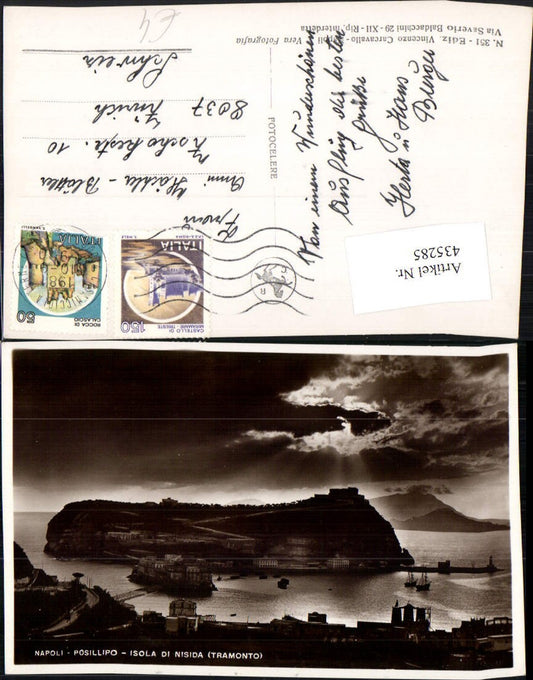 N. 351 - Ediz. Vincenzo Carcavallo - Napoli - Vera Fotografia
Via Saverio Baldacchini 29 - XII - Rip. interdetta
FOTOCELERE
Von einem Wunderschönen
Ausflug die besten
Grüße
Herta u Hans
Burger
Anni
10
8037 Zürich
Schweiz
ITALIA
150
CASTELLO DI
MIRAMARE - TRIESTE
ITALIA
50
ROCCA DI
CALASCIO
Artikel Nr.
435285
€4
NAPOLI - POSILLIPO - ISOLA DI NISIDA (TRAMONTO)